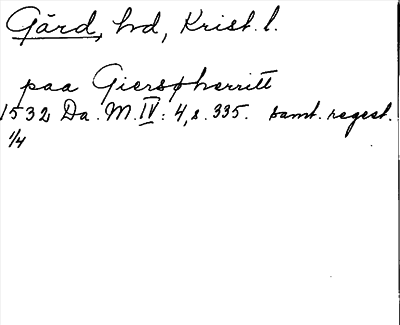 Gärd, hd, Krist. l.
paa Gierspherritt
1532 Da. M. IV: 4, s. 335. samt. regest.
1/4